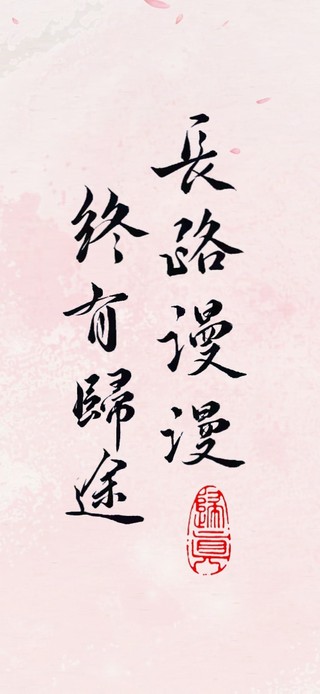 長路漫漫
終有歸途
歸真